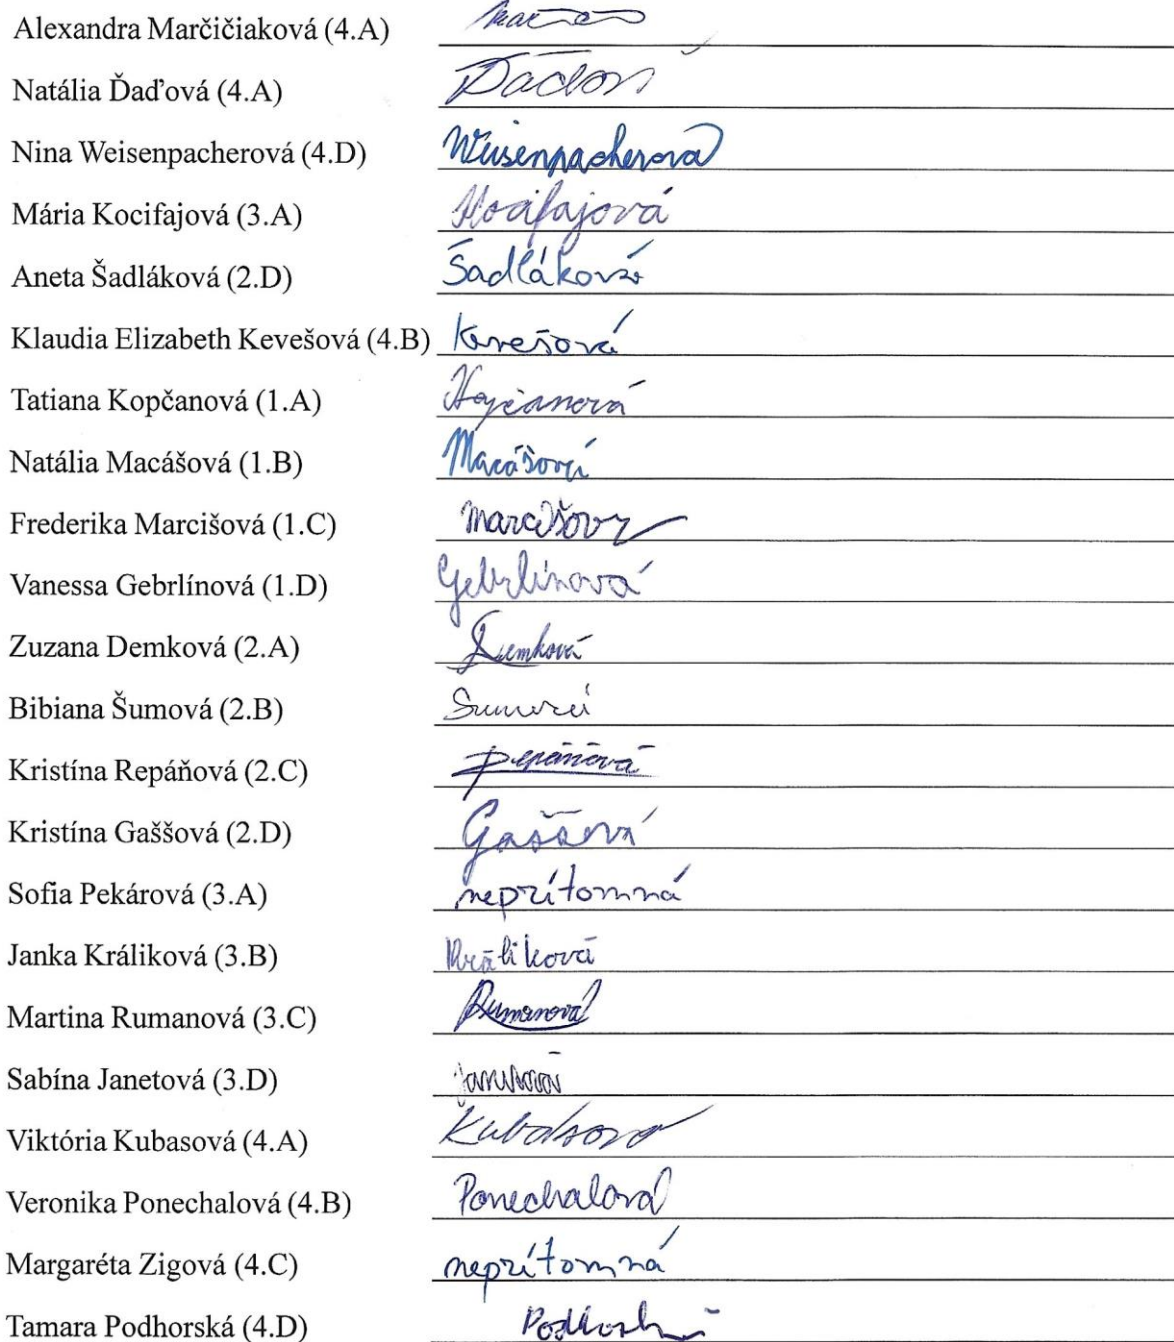 Alexandra Marčičiaková (4.A)
Natália Ďaďová (4.A) Ďaďová
Nina Weisenpacherová (4.D) Weisenpacherová
Mária Kocifajová (3.A) Kocifajová
Aneta Šadláková (2.D) Šadláková
Klaudia Elizabeth Kevešová (4.B) Kevešová
Tatiana Kopčanová (1.A) Kopčanová
Natália Macášová (1.B) Macášová
Frederika Marcišová (1.C) Marcišová
Vanessa Gebrlínová (1.D) Gebrlínová
Zuzana Demková (2.A) Demková
Bibiana Šumová (2.B) Šumová
Kristína Repáňová (2.C) Repáňová
Kristína Gaššová (2.D) Gaššová
Sofia Pekárová (3.A) neprítomná
Janka Králiková (3.B) Králiková
Martina Rumanová (3.C) Rumanová
Sabína Janetová (3.D) Janetová
Viktória Kubasová (4.A) Kubasová
Veronika Ponechalová (4.B) Ponechalová
Margaréta Zigová (4.C) neprítomná
Tamara Podhorská (4.D) Podhorská